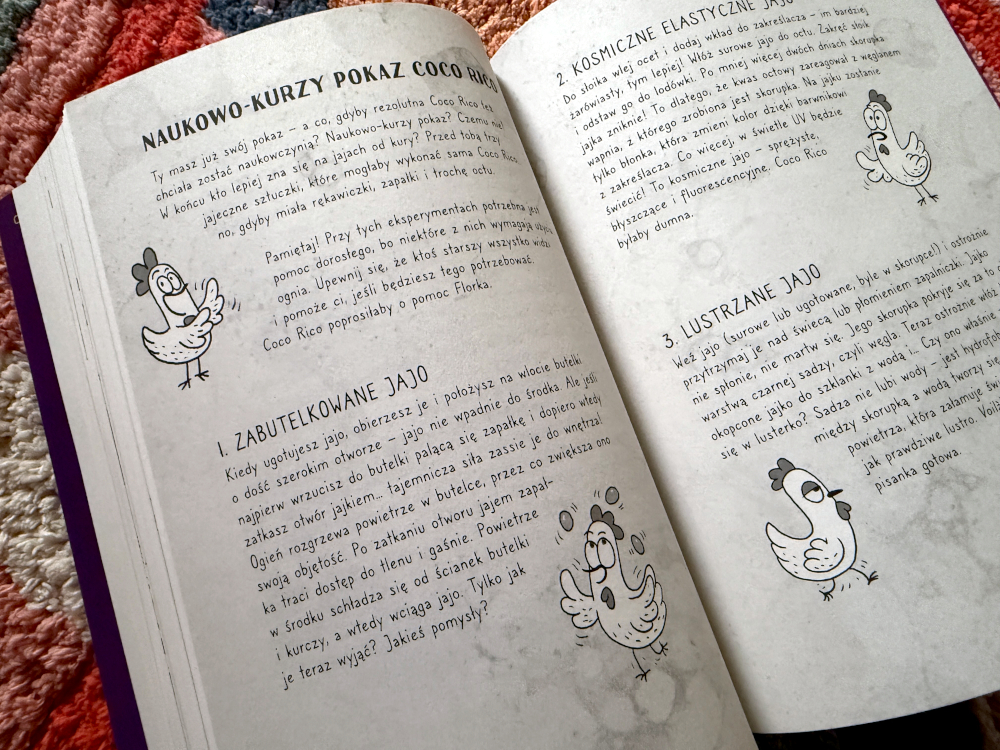 NAUKOWO-KURZY POKAZ COCO RICO
Ty masz już swój pokaz – a co, gdyby rezolutna Coco Rico też
chciała zostać naukowczynią? Naukowo-kurzy pokaz? Czemu nie!
W końcu kto lepiej zna się na jajach od kury? Przed tobą trzy
jajeczne sztuczki, które mogłaby wykonać sama Coco Rico,
no, gdyby miała rękawiczki, zapałki i trochę octu.
Pamiętaj! Przy tych eksperymentach potrzebna jest
pomoc dorosłego, bo niektóre z nich wymagają użycia
ognia. Upewnij się, że ktoś starszy wszystko widzi
i pomoże ci, jeśli będziesz tego potrzebować.
Coco Rico poprosiłaby o pomoc Florka.
1. ZABUTELKOWANE JAJO
Kiedy ugotujesz jajo, obierzesz je i położysz na wlocie butelki
o dość szerokim otworze – jajo nie wpadnie do środka. Ale jeśli
najpierw wrzucisz do butelki palącą się zapałkę i dopiero wtedy
zatkasz otwór jajkiem... tajemnicza siła zassie je do wnętrza!
Ogień rozgrzewa powietrze w butelce, przez co zwiększa ono
swoją objętość. Po zatkaniu otworu jajem zapał-
ka traci dostęp do tlenu i gaśnie. Powietrze
w środku schładza się od ścianek butelki
i kurczy, a wtedy wciąga jajo. Tylko jak
je teraz wyjąć? Jakieś pomysły?
2. KOSMICZNE ELASTYCZNE JAJO
Do słoika wlej ocet i dodaj wkład do zakreślacza – im bardziej
żarówiasty, tym lepiej! Włóż surowe jajo do octu. Zakręć słoik
i odstaw go do lodówki. Po mniej więcej dwóch dniach skorupka
jajka zniknie! To dlatego, że kwas octowy zareagował z węglanem
wapnia, z którego zrobiona jest skorupka. Na jajku zostanie
tylko błonka, która zmieni kolor dzięki barwnikowi
z zakreślacza. Co więcej, w świetle UV będzie
świecić! To kosmiczne jajo – sprężyste,
błyszczące i fluorescencyjne. Coco Rico
byłaby dumna.
3. LUSTRZANE JAJO
Weź jajo (surowe lub ugotowane, byle w skorupce!) i ostrożnie
przytrzymaj je nad świecą lub płomieniem zapalniczki. Jajko
nie spłonie, nie martw się. Jego skorupka pokryje się za to
warstwą czarnej sadzy, czyli węgla. Teraz ostrożnie włóż
okopcone jajko do szklanki z wodą i... Czy ono właśnie
się w lusterko? Sadza nie lubi wody – jest
między skorupką a wodą tworzy się
powietrza, która załamuje
jak prawdziwe lustro.
pisanka gotowa.